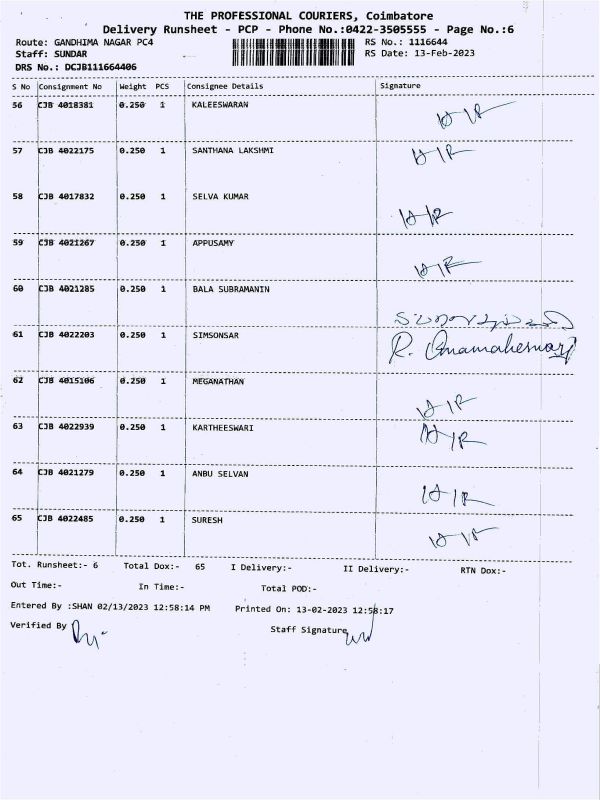 THE PROFESSIONAL COURIERS, Coimbatore
Delivery Runsheet - PCP - Phone No.:0422-3505555 - Page No.:6
Route: GANDHIMA NAGAR PC4 RS No.: 1116644
Staff: SUNDAR RS Date: 13-Feb-2023
DRS No.: DCJB111664406
S No Consignment No Weight PCS Consignee Details Signature
56 CJB 4018381 0.250 1 KALEESWARAN
57 CJB 4022175 0.250 1 SANTHANA LAKSHMI
58 CJB 4017832 0.250 1 SELVA KUMAR
59 CJB 4021267 0.250 1 APPUSAMY
60 CJB 4021285 0.250 1 BALA SUBRAMANIN
61 CJB 4022203 0.250 1 SIMSONSAR R. Umamaheswari
62 CJB 4015106 0.250 1 MEGANATHAN
63 CJB 4022939 0.250 1 KARTHEESWARI
64 CJB 4021279 0.250 1 ANBU SELVAN
65 CJB 4022485 0.250 1 SURESH
Tot. Runsheet:- 6 Total Dox:- 65 I Delivery:- II Delivery:- RTN Dox:-
Out Time:- In Time:- Total POD:-
Entered By :SHAN 02/13/2023 12:58:14 PM Printed On: 13-02-2023 12:58:17
Verified By Staff Signature